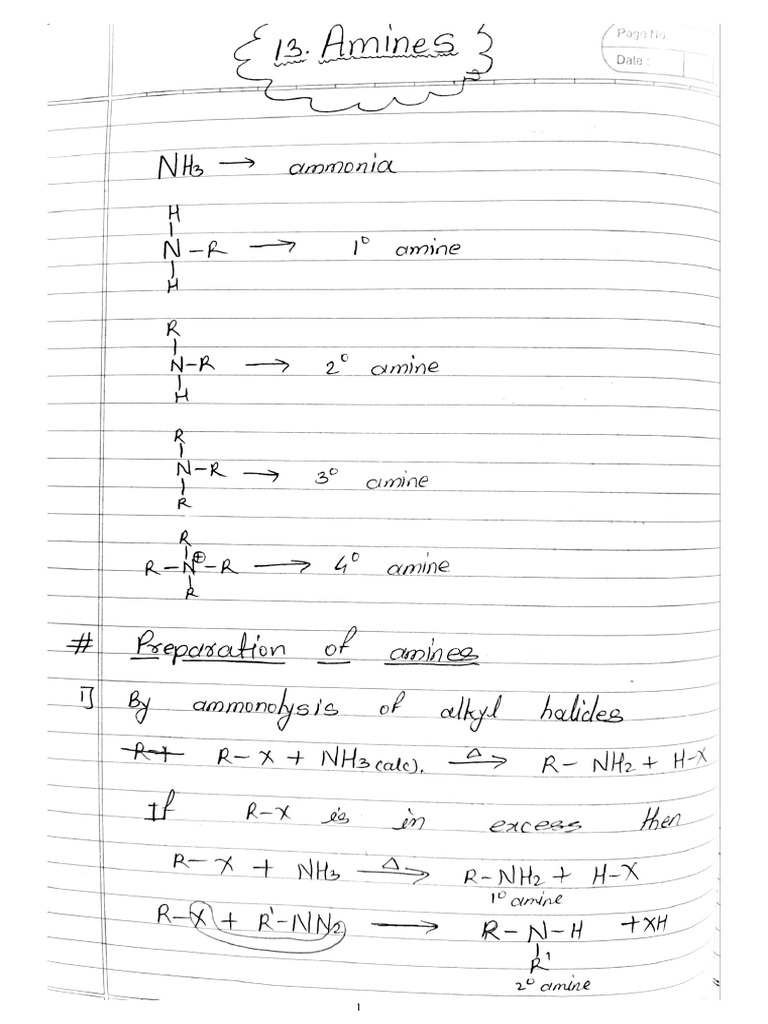 13. Amines
Page No.
Date :
NH3 → ammonia
H
|
N – R → 1° amine
|
H
R
|
N – R → 2° amine
|
H
R
|
N – R → 3° amine
|
R
R
|
R – N⊕ – R → 4° amine
|
R
# Preparation of amines
1] By ammonolysis of alkyl halides
R-X R – X + NH3 (alc). —Δ→ R – NH2 + H-X
If R-X is in excess then
R – X + NH3 —Δ→ R – NH2 + H-X
1° amine
R – X + R' – NN2 → R – N – H + XH
|
R'
2° amine
1